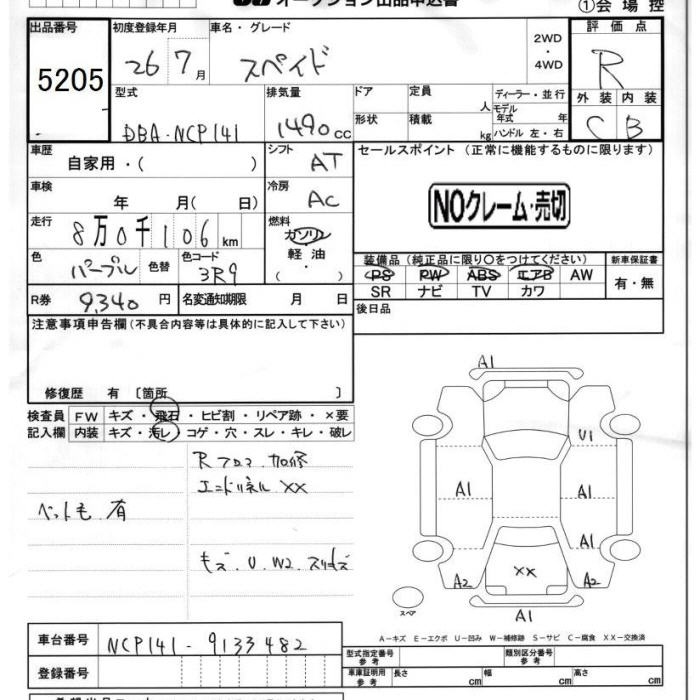 オークション出品申込書
①会場控
出品番号
5205
初度登録年月
26 7月
車名・グレード
スペイド
2WD
・
4WD
評価点
R
外装 内装
C B
型式
DBA-NCP141
排気量
1490cc
ドア
定員
人
ディーラー・並行
形状
積載
kg
モデル年式 年
ハンドル 左・右
車歴
自家用・( )
シフト
AT
セールスポイント (正常に機能するものに限ります)
NOクレーム・売切
車検
年 月( 日)
冷房
AC
走行
8万0千106km
燃料
ガソリン
軽油・
( )
色
パープル
色替
色コード
3R9
装備品(純正品に限り○をつけてください)
PS PW ABS エアB AW
SR ナビ TV カワ
新車保証書
有・無
R券
9,340円
名変通知期限 月 日
後日品
注意事項申告欄(不具合内容等は具体的に記入して下さい)
修復歴 有 〔箇所 〕
検査員
記入欄
FW キズ・飛石・ヒビ割・リペア跡・×要
内装 キズ・汚レ・コゲ・穴・スレ・キレ・破レ
Rフロア加修
エンドパネルXX
ペット毛 有
キズ、U、W2、スリキズ
A1
U1
A1
A1
A1
A2
XX
A2
A1
スペア
A－キズ E－エクボ U－凹み W－補修跡 S－サビ C－腐食 XX－交換済
車台番号
NCP141-9133482
登録番号
型式指定番号
参考
類別区分番号
参考
車庫証明用
参考
長さ
cm
幅
cm
高さ
cm